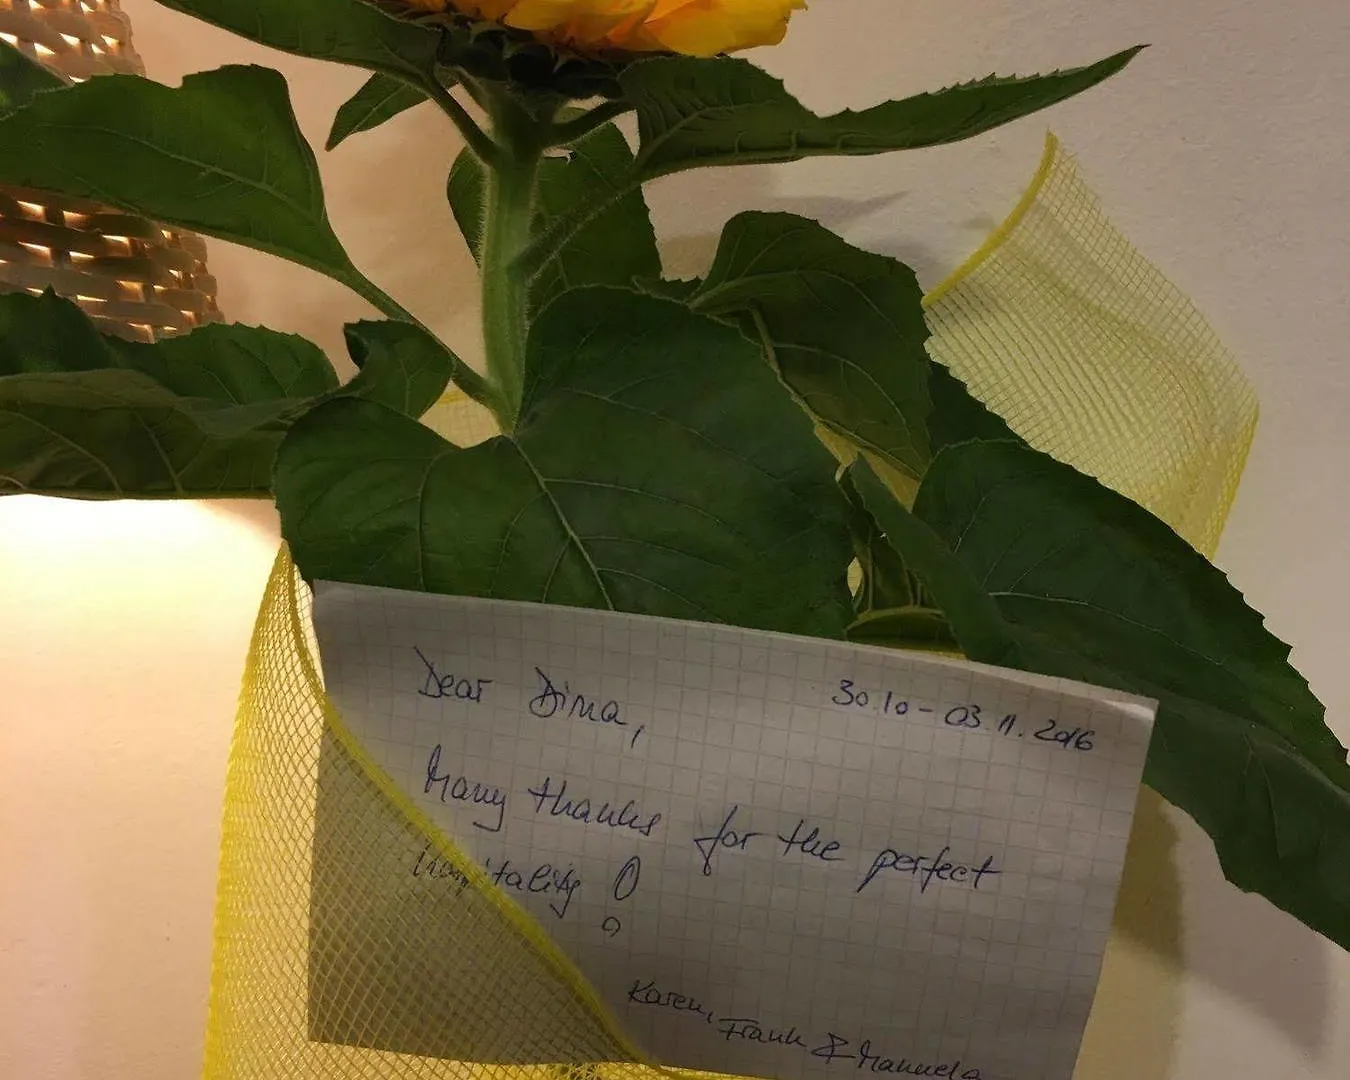 30.10 - 03.11.2016
Dear Dima,
Many thanks for the perfect
hospitality !
Karen,
Frank & Manuela